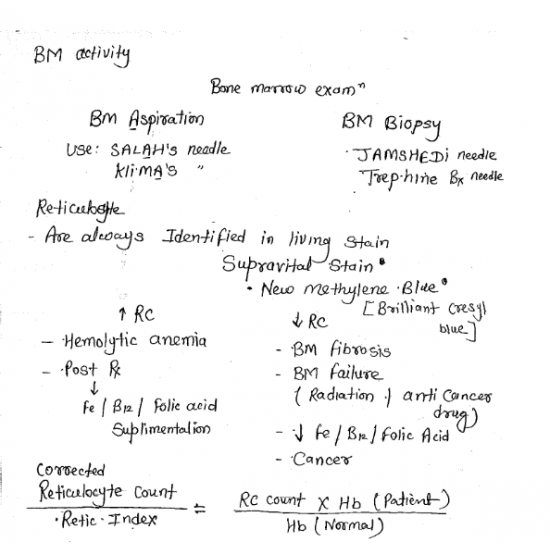 BM activity
Bone marrow examⁿ
BM Aspiration
Use: SALAH's needle
Kli·MA's "
BM Biopsy
· JAMSHEDi needle
Trep·hine Bx needle
Reticulocyte
- Are always Identified in living Stain
Supravital Stain •
• New methylene Blue •
[Brilliant Cresyl
blue]
↑ RC
- Hemolytic anemia
- Post Rx
↓
Fe / B12 / Folic acid
Suplimentation
↓ RC
- BM fibrosis
- BM failure
( Radiation / anti Cancer
drug)
- ↓ Fe / B12 / Folic Acid
- Cancer
Corrected
Reticulocyte Count
Retic · Index
=
RC count X Hb (Patient)
Hb (Normal)